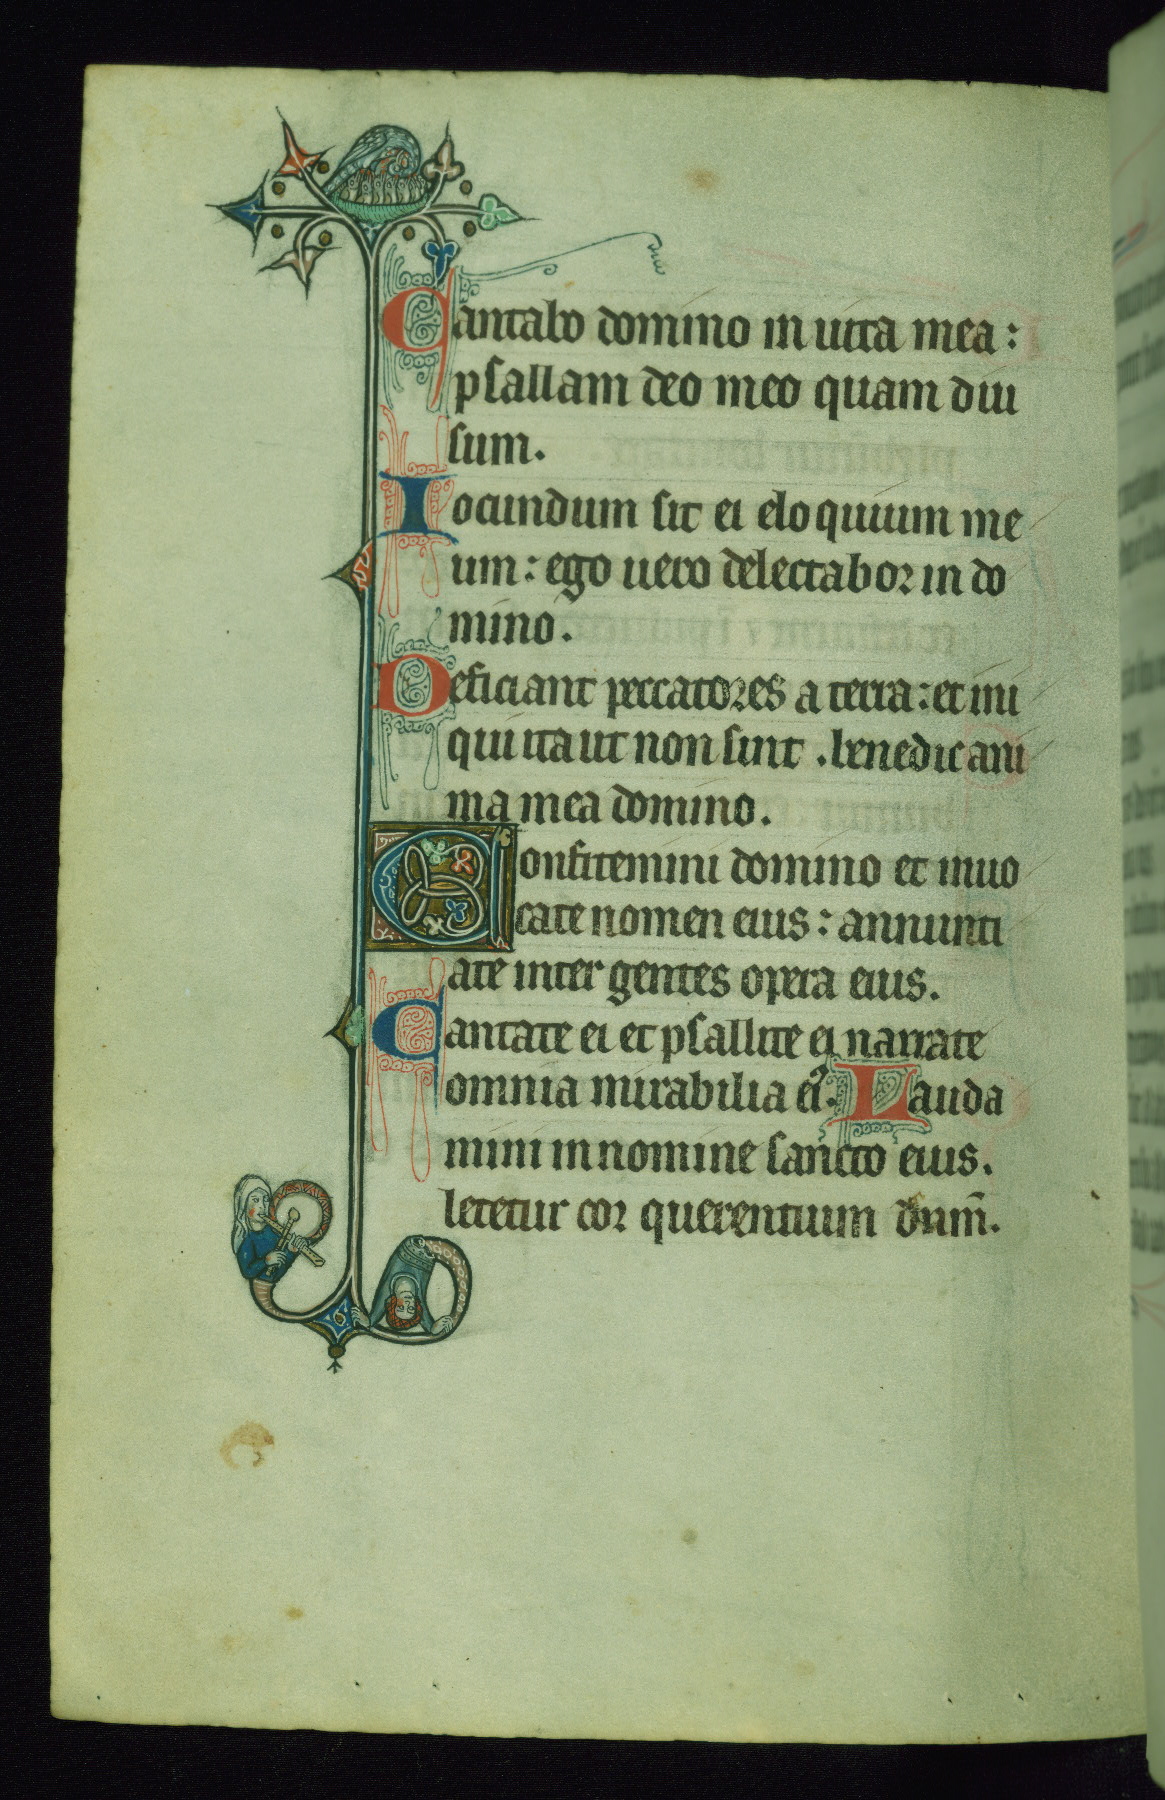 Cantabo domino in uita mea:
psallam deo meo quam diu
sum.
Iocundum sit ei eloquium me
um: ego uero delectabor in do
mino.
Deficiant peccatores a terra: et ini
qui ita ut non sint. benedic ani
ma mea domino.
Confitemini domino et inuo
cate nomen eius: annunti
ate inter gentes opera eius.
Cantate ei et psallite ei narrate
omnia mirabilia ei9. Lauda
mini in nomine sancto eius.
letetur cor querentium dnm̄.